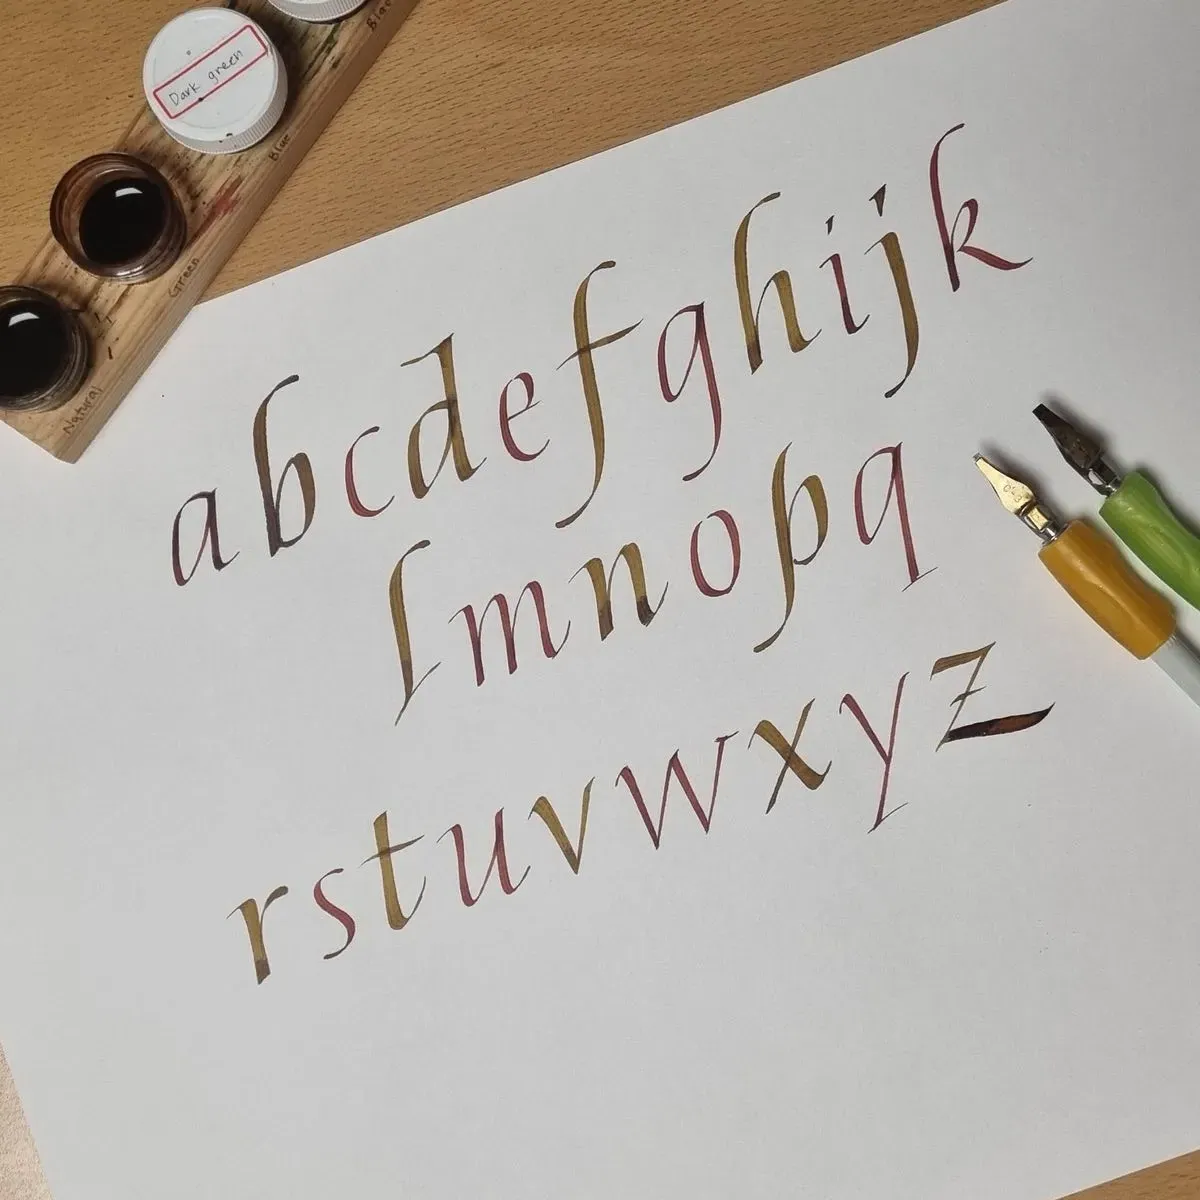 Dark green
Blue
Green
Natural
abcdefghijk
lmnopq
rstuvwxyz